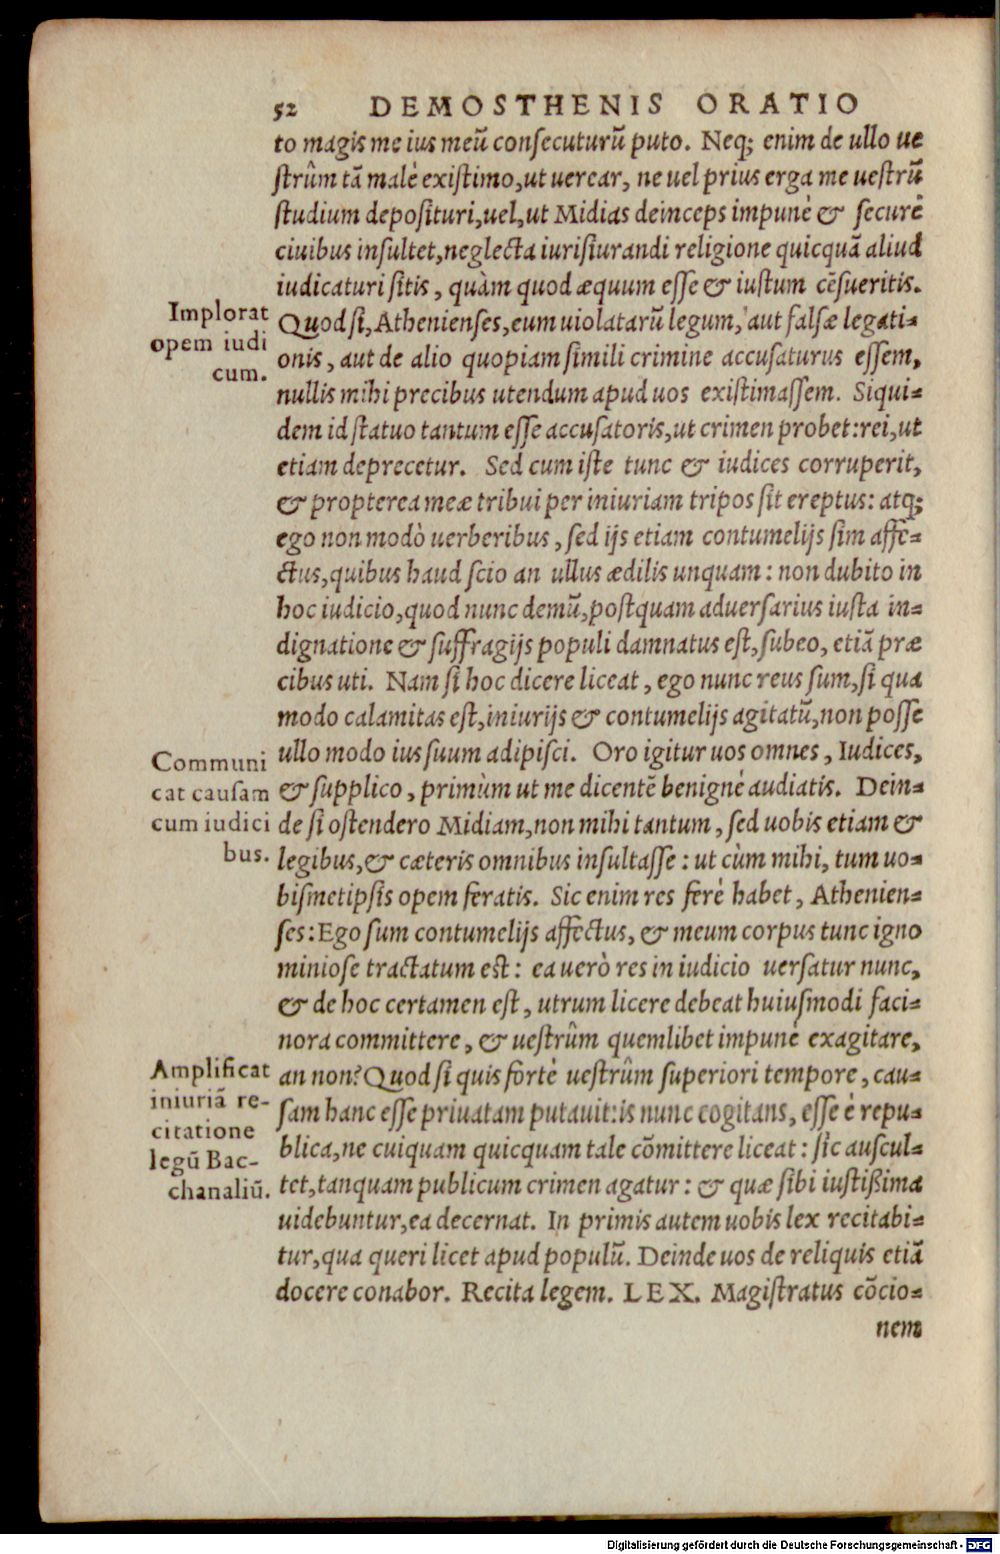 52 DEMOSTHENIS ORATIO
to magis me ius meū consecuturū puto. Neq; enim de ullo ue
strûm tā malè existimo, ut uerear, ne uel prius erga me uestrū
studium deposituri, uel, ut Midias deinceps impunè & securè
ciuibus insultet, neglecta iurisiurandi religione quicquā aliud
iudicaturi sitis, quàm quod æquum esse & iustum cēsueritis.
Implorat
opem iudi
cum.
Quod si, Athenienses, eum uiolatarū legum, aut falsæ legati-
onis, aut de alio quopiam simili crimine accusaturus essem,
nullis mihi precibus utendum apud uos existimassem. Siqui-
dem id statuo tantum esse accusatoris, ut crimen probet: rei, ut
etiam deprecetur. Sed cum iste tunc & iudices corruperit,
& propterea meæ tribui per iniuriam tripos sit ereptus: atq;
ego non modò uerberibus, sed ijs etiam contumelijs sim affe-
ctus, quibus haud scio an ullus ædilis unquam: non dubito in
hoc iudicio, quod nunc demū, postquam aduersarius iusta in-
dignatione & suffragijs populi damnatus est, subeo, etiā præ
cibus uti. Nam si hoc dicere liceat, ego nunc reus sum, si qua
modo calamitas est, iniurijs & contumelijs agitatū, non posse
ullo modo ius suum adipisci. Oro igitur uos omnes, Iudices,
Communi
cat causam
cum iudici
bus.
& supplico, primùm ut me dicentē benignè audiatis. Dein-
de si ostendero Midiam, non mihi tantum, sed uobis etiam &
legibus, & cæteris omnibus insultasse: ut cùm mihi, tum uo-
bismetipsis opem feratis. Sic enim res ferè habet, Athenien-
ses: Ego sum contumelijs affectus, & meum corpus tunc igno
miniose tractatum est: ea uerò res in iudicio uersatur nunc,
& de hoc certamen est, utrum licere debeat huiusmodi faci-
nora committere, & uestrûm quemlibet impunè exagitare,
Amplificat
iniuriā re-
citatione
legū Bac-
chanaliū.
an non? Quod si quis fortè uestrûm superiori tempore, cau-
sam hanc esse priuatam putauit: is nunc cogitans, esse è repu-
blica, ne cuiquam quicquam tale cōmittere liceat: sic auscul-
tet, tanquam publicum crimen agatur: & quæ sibi iustißima
uidebuntur, ea decernat. In primis autem uobis lex recitabi-
tur, qua queri licet apud populū. Deinde uos de reliquis etiā
docere conabor. Recita legem. LEX. Magistratus cōcio-
nem
Digitalisierung gefördert durch die Deutsche Forschungsgemeinschaft - DFG